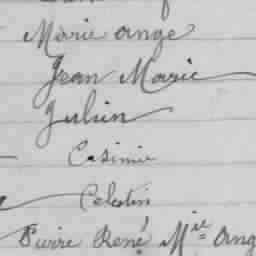 Marie Ange
Jean Marie
Julien
Casimir
Celestin
Pierre René Mie Ang